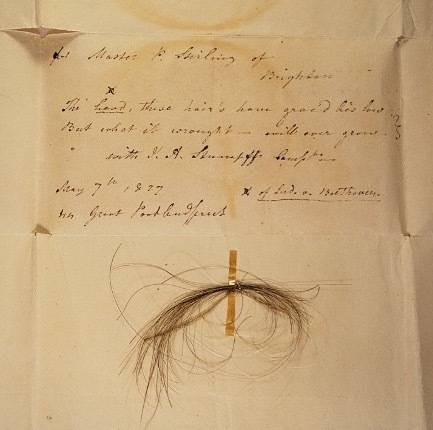 for Master P. Stirling of
Brighton
x
The head, these hair's have grac'd lies low
But what it wrought — will ever grow.
with Stumpff
May 7th 1827
x of Lud. v. Beethoven.
Great Portland Street